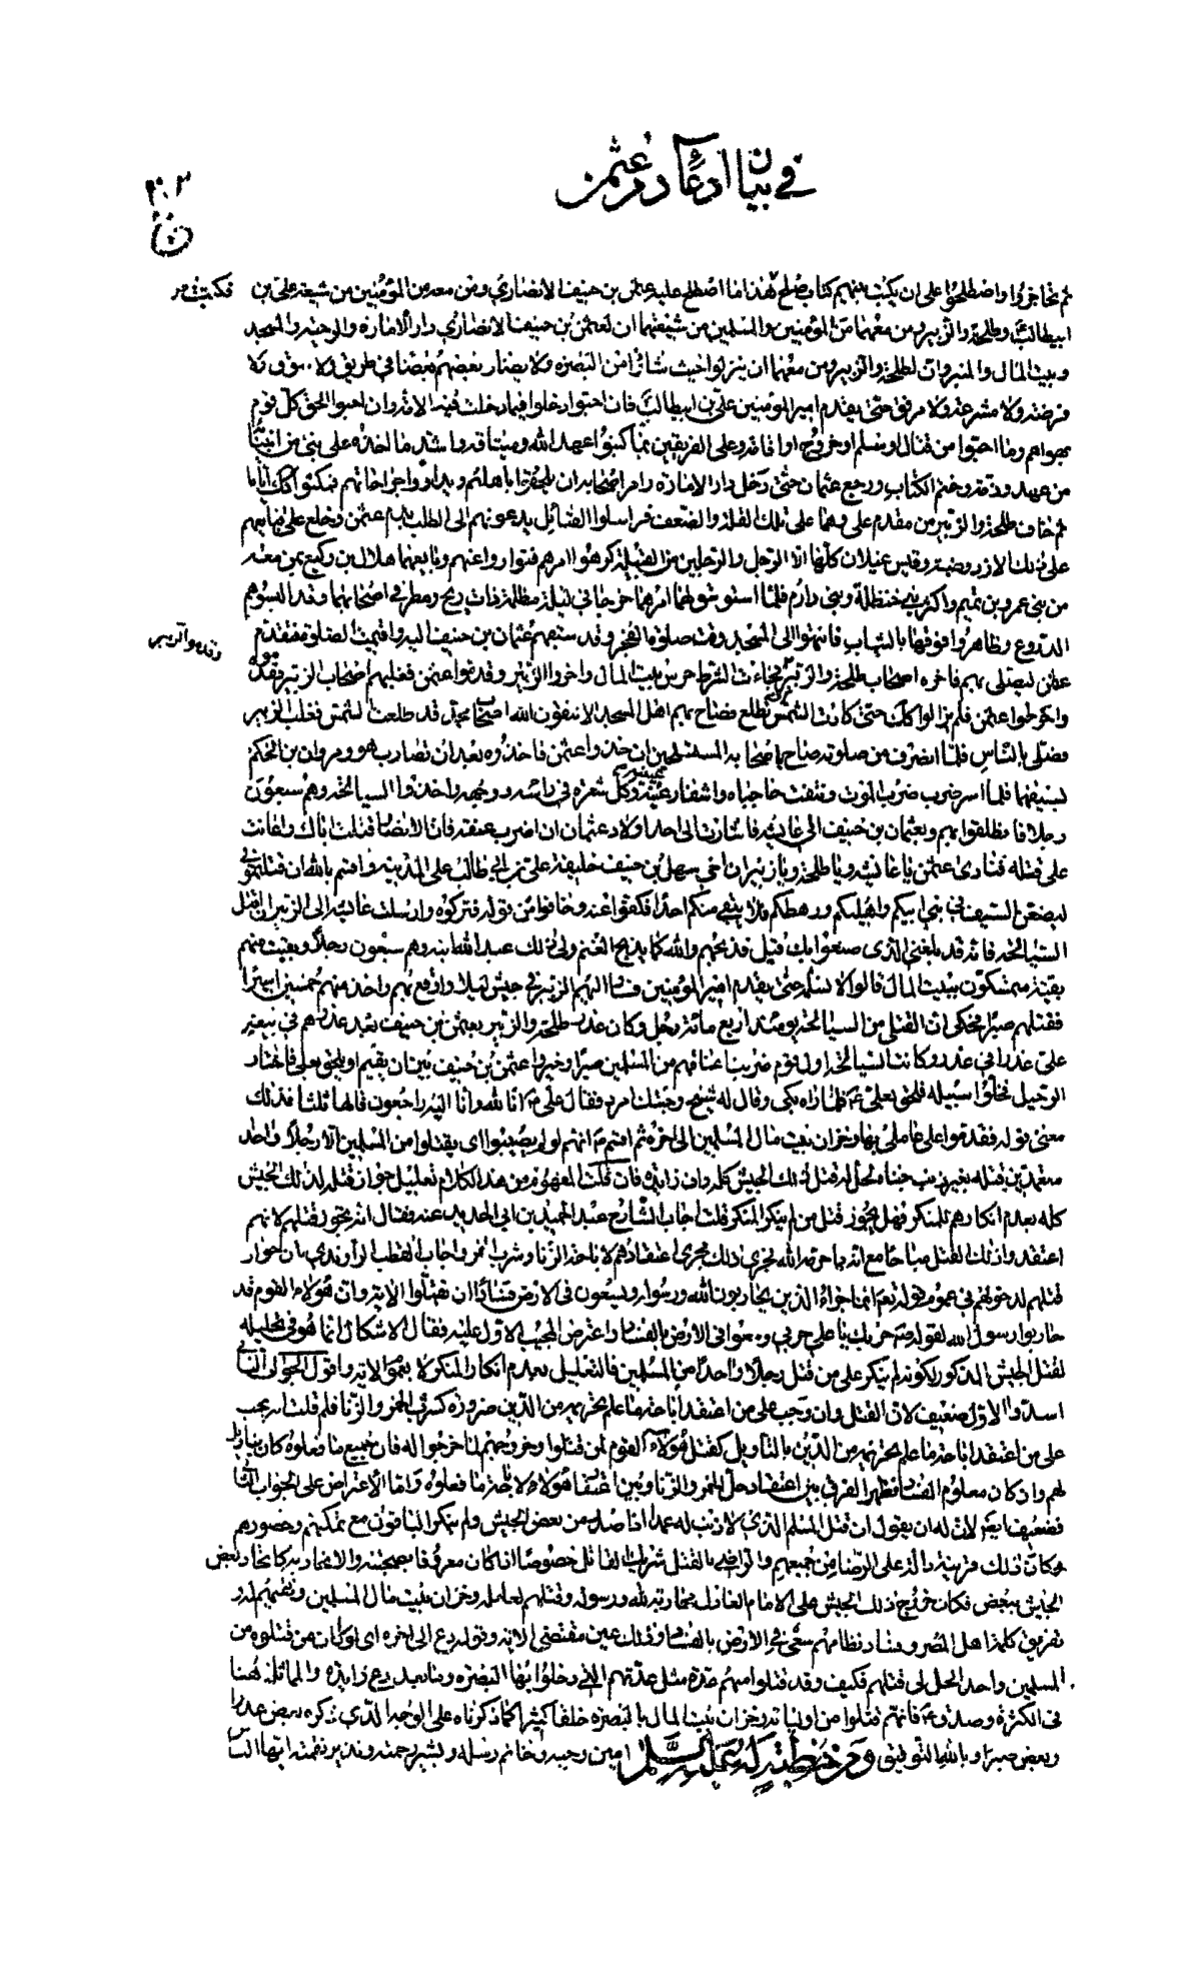 في بيان ادعاء دم عثمن
٣٠٢
ثم تحاجزوا واصطلحوا على ان يكتب بينهم كتاب صلح هذا ما اصطلح عليه عثمن بن حنيف الانصاري ومن معه من المؤمنين من شيعة علي بن
ابيطالب وطلحة والزبير ومن معهما من المؤمنين والمسلمين من شيعتهما ان لعثمن بن حنيف الانصاري دار الامارة والرحبة والمسجد
وبيت المال والمنبر وان لطلحة والزبير ومن معهما ان ينزلوا حيث شاؤا من البصره ولا يضار بعضهم بعضا في طريق ولا سوق ولا
فرضة ولا مشرعة ولا مرفق حتى يقدم امير المؤمنين علي بن ابيطالب فان احبوا دخلوا فيما دخلت فيه الامة وان احبوا الحق كل قوم
بهواهم وما احبوا من قتال او سلم او خروج او اقامة وعلى الفريقين بما كتبوا عهد الله وميثاقه واشد ما اخذه على نبي من انبيائه
من عهد وذمة وختم الكتاب ورجع عثمان حتى دخل دار الامارة وامر اصحابه ان يلحقوا باهلهم ويداووا جراحاتهم فمكثوا كك اياما
ثم خاف طلحة والزبير من مقدم علي وهما على تلك القلة والضعف فراسلوا القبائل يدعونهم الى الطلب بدم عثمن وخلع علي فبايعهم
على ذلك الازد وضبة وقيس عيلان كلها الا الرجل والرجلين من القبيلة كرهوا امرهم فتواروا عنهم وبايعهما هلال بن وكيع بمن معه
من بني عمرو بن تميم واكثر بني حنظلة وبني دارم فلما استوثق لهما امرهما خرجا في ليلة مظلمة ذات ريح ومطر في اصحابهما وقد البسوهم
الدروع وظاهروا فوقها بالثياب فانتهوا الى المسجد وقت صلوة الفجر وقد سبقهم عثمان بن حنيف اليه واقيمت الصلوة فتقدم
عثمن ليصلي بهم فاخره اصحاب طلحة والزبير فجاءت الشرط حرس بيت المال واخروا الزبير وقدموا عثمن فغلبهم اصحاب الزبير فقدموا
واخروا عثمن فلم يزالوا كك حتى كادت الشمس تطلع فصاح بهم اهل المسجد الا تتقون الله اصحاب محمد قد طلعت الشمس فغلب الزبير
فصلى بالناس فلما انصرف من صلوته صاح باصحابه المستسلحين ان خذوا عثمن فاخذوه بعد ان تضارب هو ومروان بن الحكم
بسيفهما فلما اسر ضرب ضرب الموت ونتفت حاجباه واشفار عينيه وكل شعرة في راسه ووجهه واخذوا السيابجة وهم سبعون
رجلا فانطلقوا بهم وبعثمان بن حنيف الى عايشة فاشارت الى احد اولاد عثمان ان اضرب عنقه فان الانصار قتلت اباك واعانت
على قتله فنادى عثمن يا عائشة ويا طلحة ويا زبير ان اخي سهل بن حنيف خليفة علي بن ابي طالب على المدينة واقسم بالله ان قتلتموني
ليضعن السيف في بني ابيكم واهليكم ورهطكم فلا يبقي منكم احدا فكفوا عنه وخافوا من قوله فتركوه وارسلت عايشة الى الزبير ان اقتل
السيابجة فانه قد بلغني الذي صنعوا بك قبل فذبحهم والله كما يذبح الغنم ولي ذلك عبد الله ابنه وهم سبعون رجلا وبقيت منهم
بقية متمسكون ببيت المال قالوا لا نسلمه حتى يقدم امير المؤمنين فسار اليهم الزبير في جيش ليلا واوقع بهم واخذ منهم خمسين اسيرا
فقتلهم صبرا فحكي ان القتلى من السيابجة يومئذ اربع مائة رجل وكان غدر طلحة والزبير بعثمن بن حنيف بعد غدرهم في بيعة
علي غدرا في غدر وكانت السيابجة اول قوم ضربت اعناقهم من المسلمين صبرا وخيروا عثمن بن حنيف بين ان يقيم او يلحق بعلي فاختار
الرحيل فخلوا سبيله فلحق بعلي ع فلما راه بكى وقال له شيخ وجئتك امرد فقال علي ع انا لله وانا اليه راجعون قالها ثلثا فذلك
معنى قوله فقدموا على عاملي بها وخزان بيت مال المسلمين الى اخره ثم اقسم ع انهم لو لم يصيبوا اي يقتلوا من المسلمين الا رجلا واحدا
متعمدين قتله بغير ذنب جناه لحل له قتل ذلك الجيش كله وان زايدة فان قلت المفهوم من هذا الكلام تعليل جواز قتله لذلك الجيش
كله بعدم انكارهم للمنكر فهل يجوز قتل من لم ينكر المنكر قلت اجاب الشارح عبد الحميد بن ابي الحديد عنه فقال انه يجوز قتلهم لانهم
اعتقدوا ذلك القتل مباحا مع انه مما حرمه الله فجرى ذلك مجرى اعتقادهم لاباحة الزنا وشرب الخمر واجاب القطب الراوندي بان جواز
قتلهم لدخولهم في عموم قوله تعم انما جزاء الذين يحاربون الله ورسوله ويسعون في الارض فسادا ان يقتلوا الاية وان هؤلاء القوم قد
حاربوا رسول الله لقوله ص حربك يا علي حربي وسعوا في الارض بالفساد واعترض المجيب الاول عليه فقال الاشكال انما هو في تعليله
لقتل الجيش المذكور بكونه لم ينكر على من قتل رجلا واحدا من المسلمين فالتعليل بعدم انكار المنكر لا بعموم الاية واقول الجواب الثاني
اسد والاول ضعيف لان القتل وان وجب على من اعتقد اباحة ما علم تحريمه من الدين ضرورة كشرب الخمر والزنا فلم قلت انه يجب
على من اعتقد اباحة ما علم تحريمه من الدين بالتاويل كقتل هؤلاء القوم لمن قتلوا وخروجهم لما خرجوا له فان جميع ما فعلوه كان بتاويل
لهم وان كان معلوم الفساد فظهر الفرق بين اعتقاد حل الخمر والزنا وبين اعتقاد هؤلاء لاباحة ما فعلوه واما الاعتراض على الجواب الثاني
فضعيف ايضا لانه له ان يقول ان قتل المسلم الذي لا ذنب له عمدا اذا صدر من بعض الجيش ولم ينكر الباقون مع تمكنهم وحضورهم
وكان ذلك قرينة دالة على الرضا من جميعهم والراضي بالقتل شريك القاتل خصوصا اذا كان معروفا بصحبته والاتحاد به كاتحاد بعض
الجيش ببعض فكان خروج ذلك الجيش على الامام العادل محاربة لله ورسوله وقتلهم لعامله وخزان بيت مال المسلمين ونهبهم له و
تفريق كلمة اهل المصر وفساد نظامهم سعي في الارض بالفساد وذلك عين مقتضى الاية وقوله دع الى اخره اي لو كان من قتلوه من
المسلمين واحدا لحل لي قتلهم فكيف وقد قتلوا منهم عدة مثل عدتهم التي دخلوا بها البصره وما بعد دع زايدة والمماثلة هنا
في الكثرة وصدق ع فانهم قتلوا من اوليائه وخزان بيت المال بالبصرة خلقا كثيرا كما ذكرناه على الوجه الذي ذكره بعض غدرا
وبعض صبرا وبالله التوفيق ومن خطبة له عليه السلم امين وحيه وخاتم رسله وبشير رحمته ونذير نقمته ايها الناس